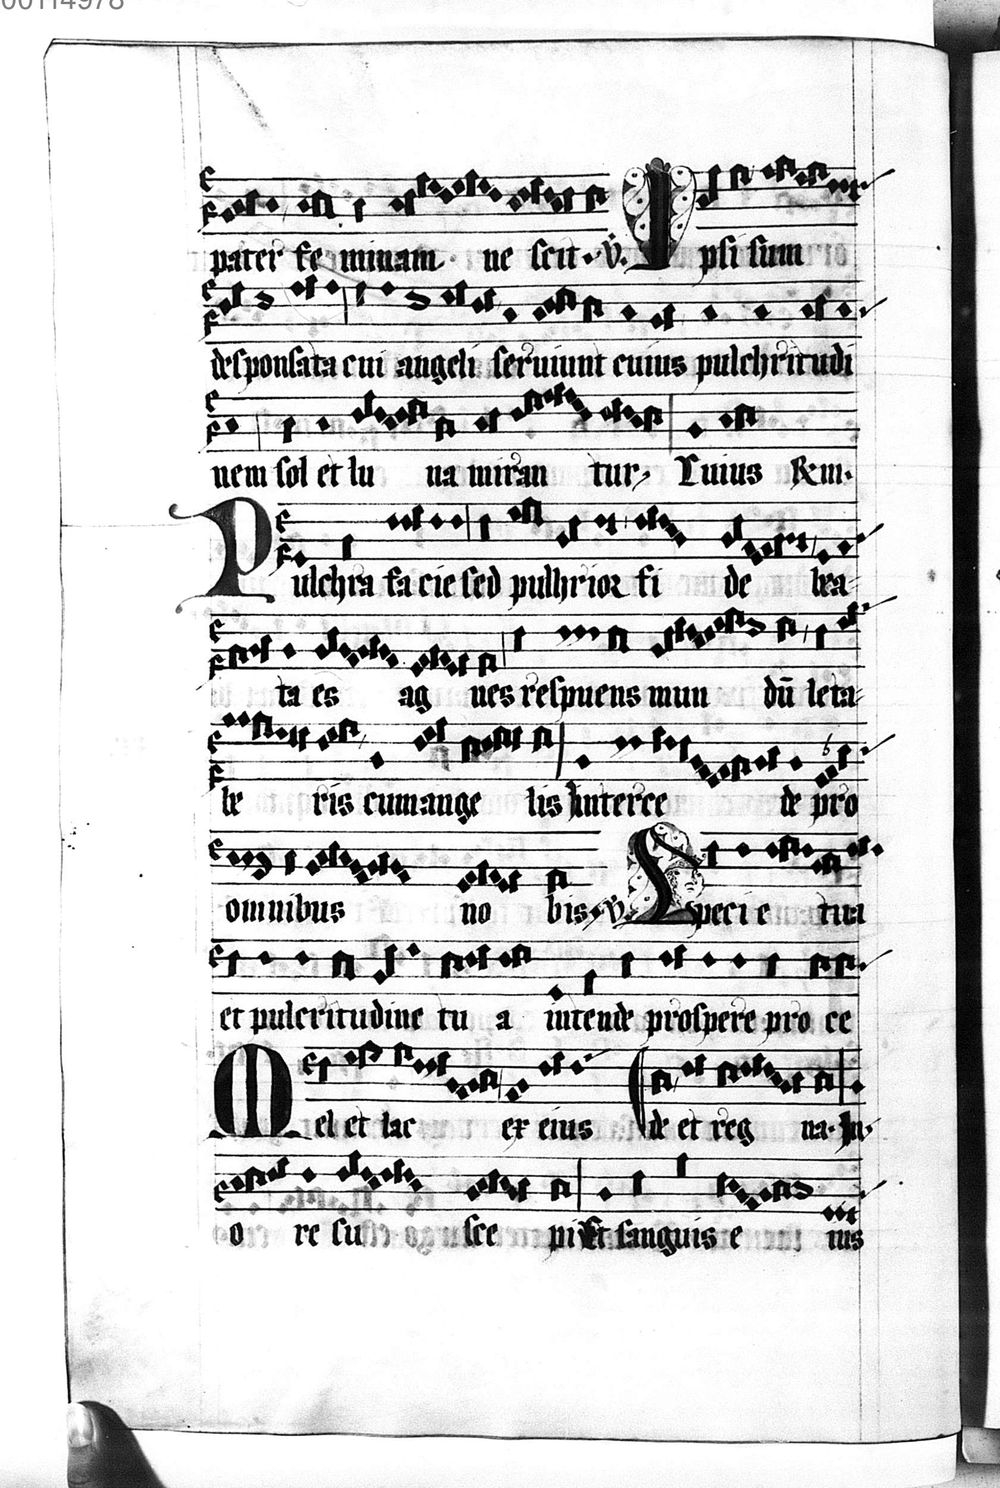 00114978
pater feminam ne scit · v̇. Ipsi sum
desponsata cui angeli seruiunt cuius pulchritudi
nem sol et lu na miran tur, Cuius
Pulchra facie sed pulhrior fi de bea
ta es ag nes respuens mun dū leta
be ris cum ange lis Interce de pro
omnibus no bis, v̇. Specie tua
et pulcritudine tu a intende prospere pro ce
Mel et lac ex eius de et reg na. In
o re su sce pi Et sanguis e ius